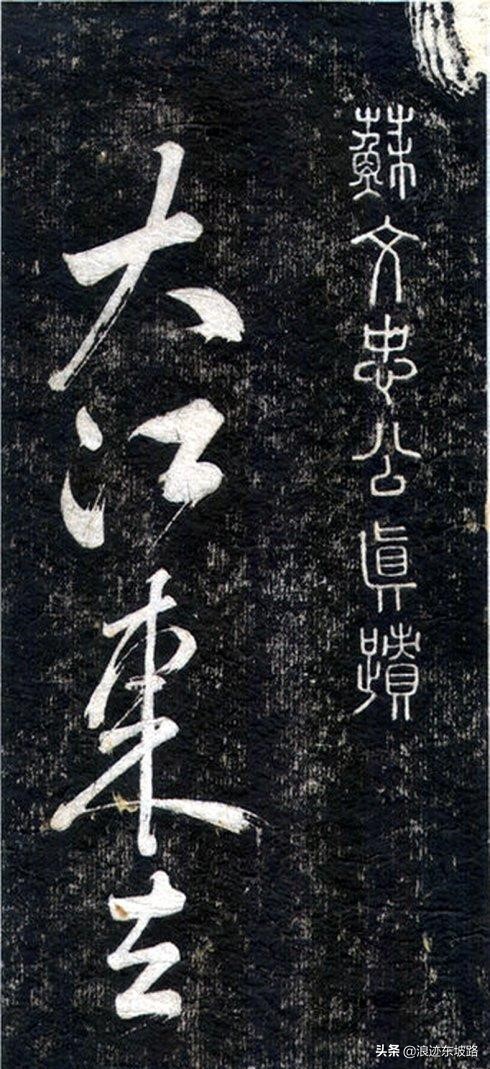 蘇文忠公真蹟
大江東去
头条 @浪迹东坡路